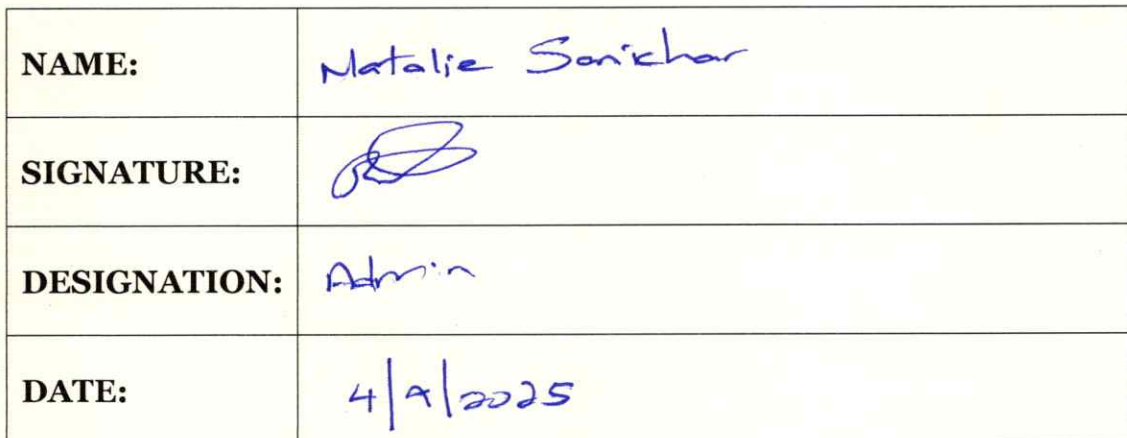 NAME: Natalie Sonichar
SIGNATURE:
DESIGNATION: Admin
DATE: 4/9/2025